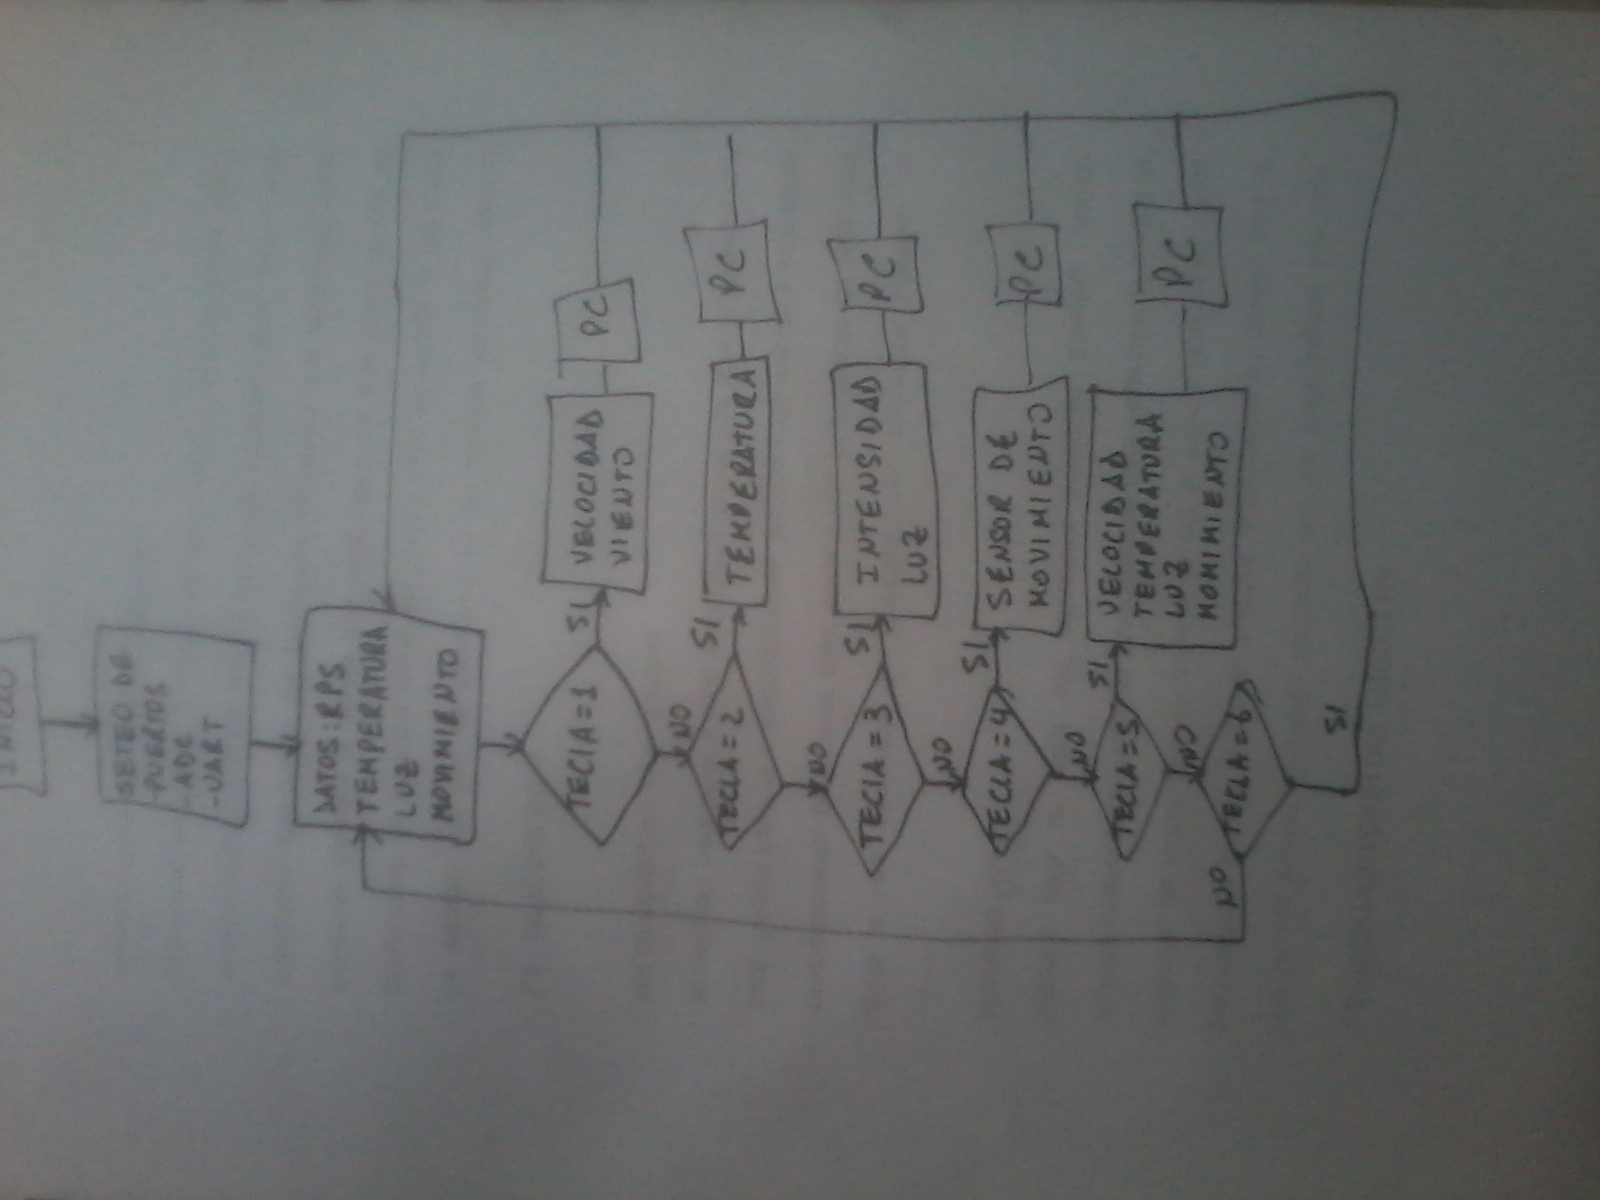 INICIO
SETEO DE
-PUERTOS
-ADC
-UART
DATOS: RPS
TEMPERATURA
LUZ
MOVIMIENTO
TECLA=1
SI
VELOCIDAD
VIENTO
PC
NO
TECLA=2
SI
TEMPERATURA
PC
NO
TECLA=3
SI
INTENSIDAD
LUZ
PC
NO
TECLA=4
SI
SENSOR DE
MOVIMIENTO
PC
NO
TECLA=5
SI
VELOCIDAD
TEMPERATURA
LUZ
MOMIMIENTO
PC
NO
TECLA=6
NO
SI